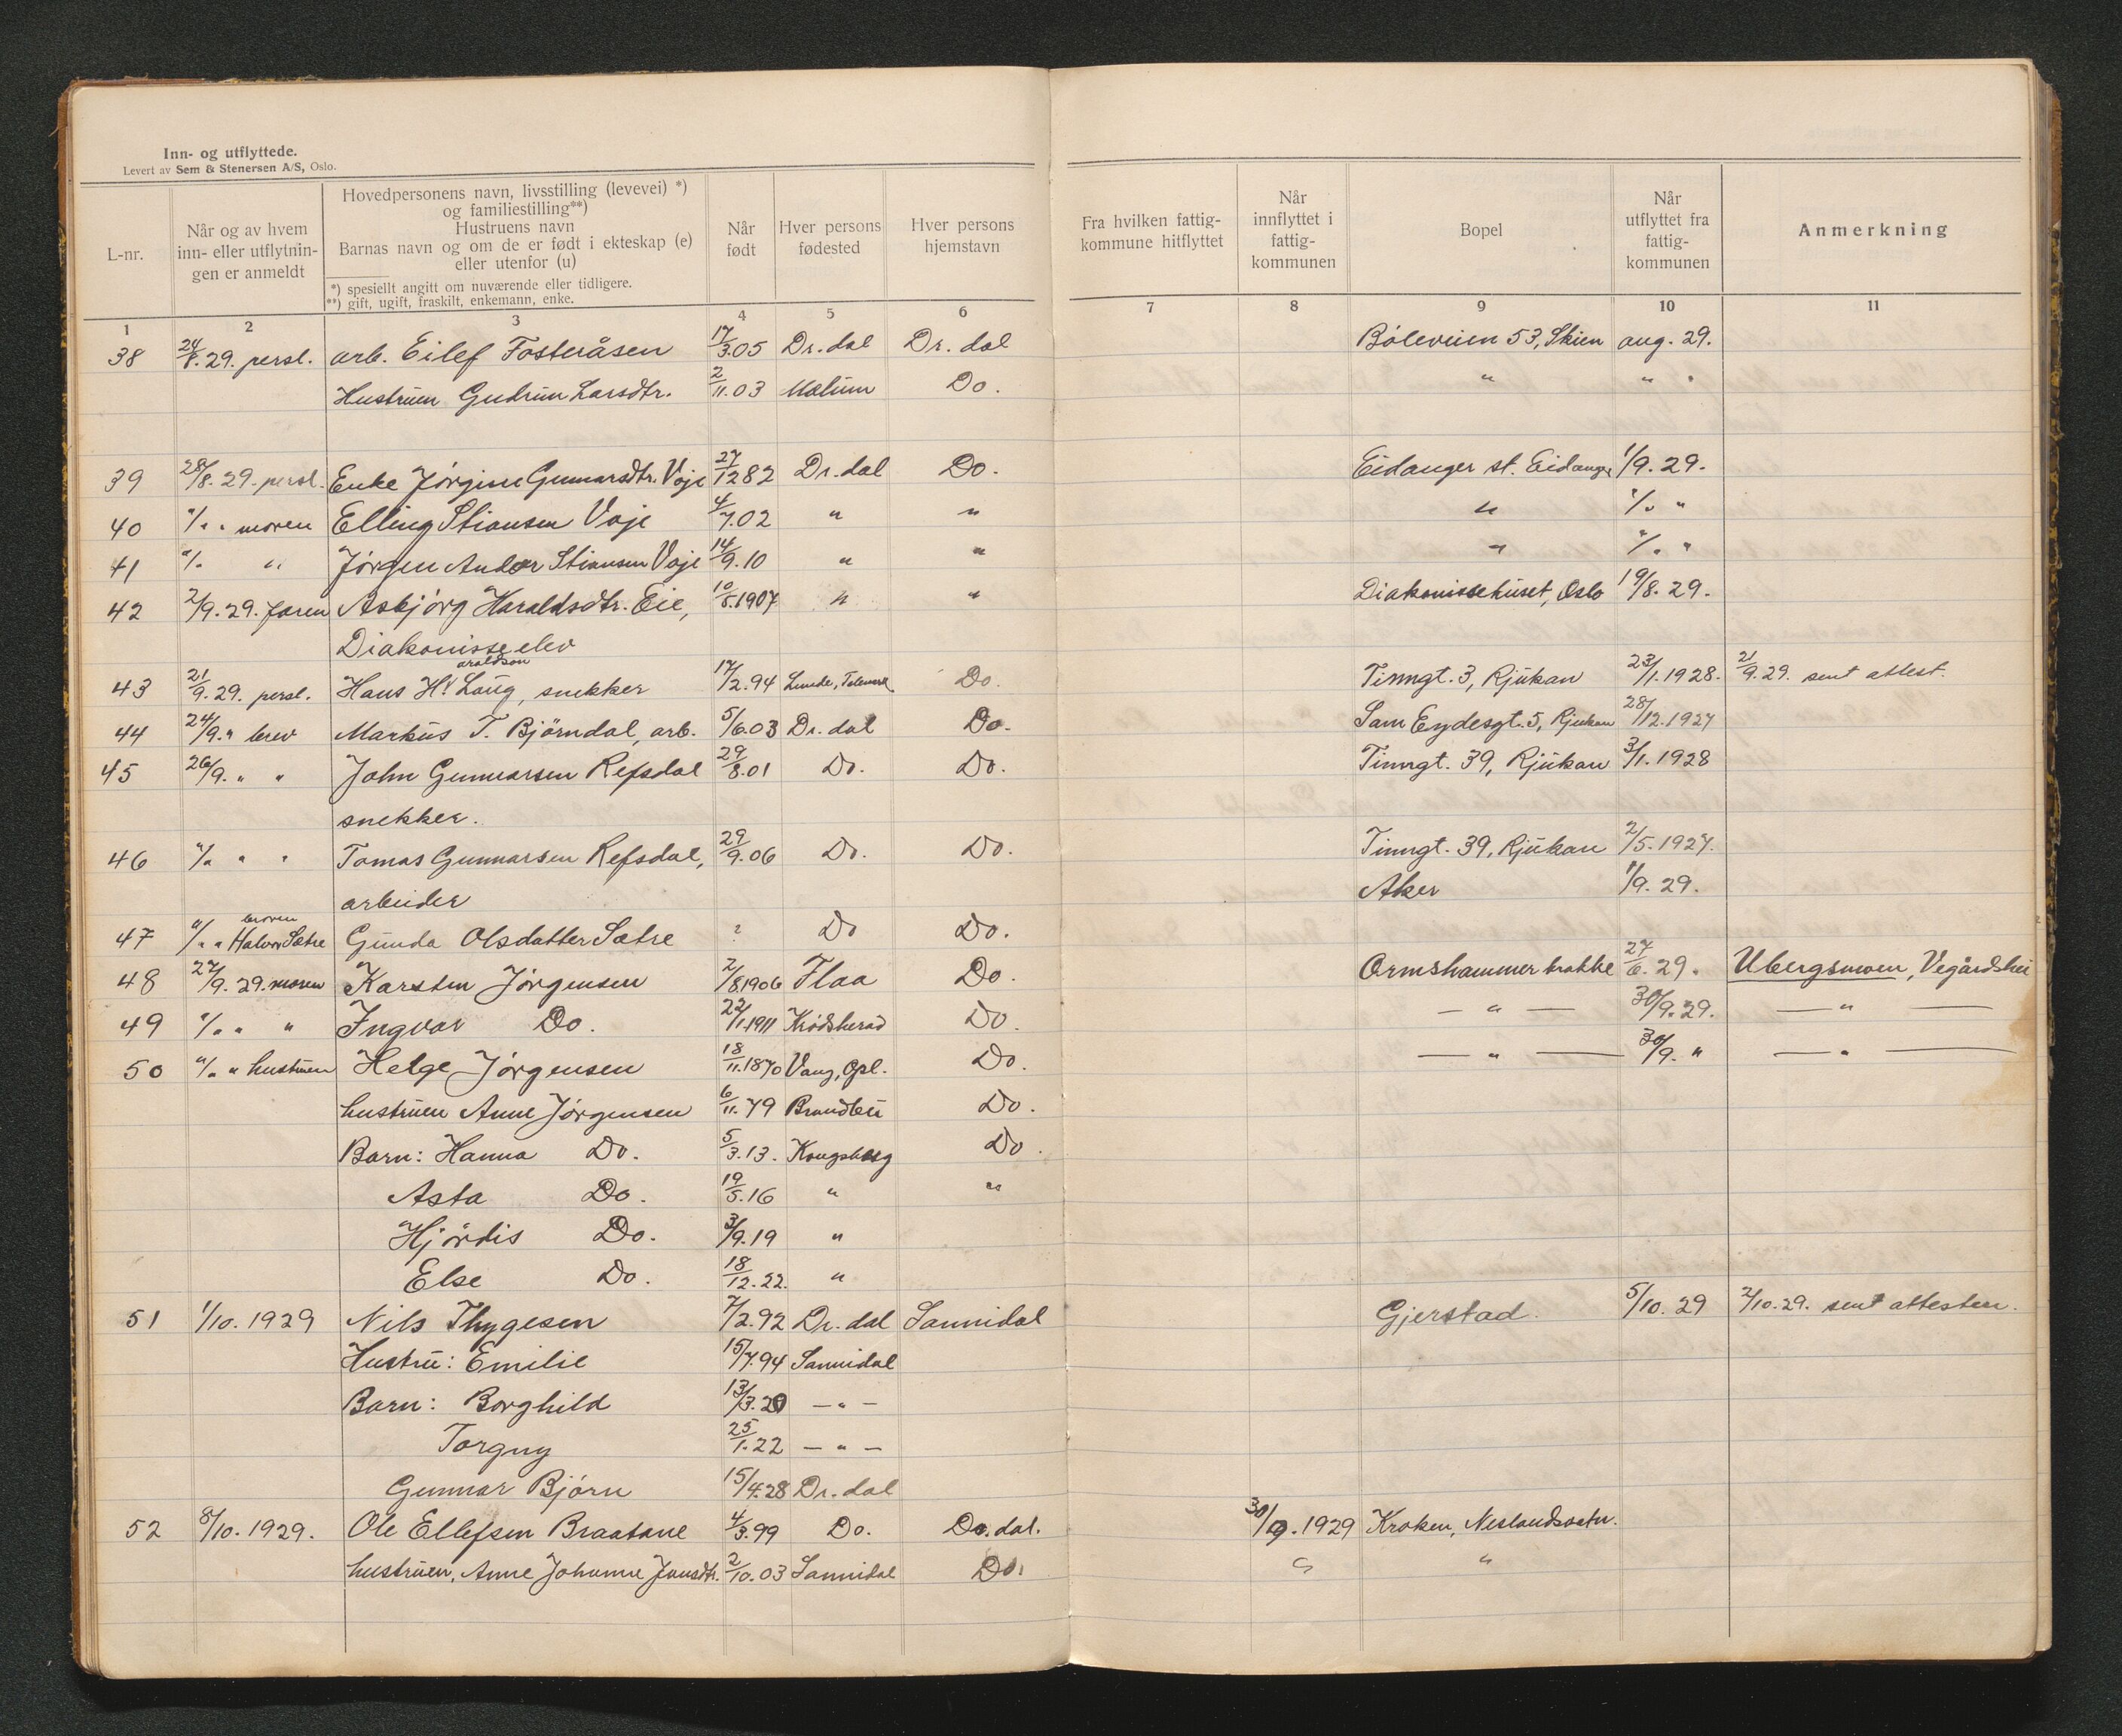 Inn- og utflyttede.
Levert av Sem & Stenersen A/S, Oslo.
L-nr.
Når og av hvem inn- eller utflytnin-gen er anmeldt
Hovedpersonens navn, livsstilling (levevei) *)
og familiestilling**)
Hustruens navn
Barnas navn og om de er født i ekteskap (e)
eller utenfor (u)
*) spesiellt angitt om nuværende eller tidligere.
**) gift, ugift, fraskilt, enkemann, enke.
Når født
Hver persons fødested
Hver persons hjemstavn
Fra hvilken fattig-kommune hitflyttet
Når innflyttet i fattig-kommunen
Bopel
Når utflyttet fra fattig-kommunen
Anmerkning
1 2 3 4 5 6 7 8 9 10 11
38 24/8. 29. persl. arb. Eilef Fosteråsen 17/3.05 Dr. dal Dr. dal Böleveien 53, Skien aug. 29.
Hustruen Gudrun Larsdtr. 2/11.03 Mælum Do. " " "
39 28/8. 29. persl. Enke Jörgine Gunnarsdtr. Voje 27/12 82 Dr. dal Do. Eidanger st. Eidanger 1/9. 29.
40 "/" " moren Elling Stiansen Voje 4/7.02 " " " "/" "
41 "/" " Jörgen Ander Stiansen Voje 14/9.10 " " " "/" "
42 2/9. 29. faren Asbjörg Haraldsdtr. Eie, 10/5.1907 " " Diakonissehuset, Oslo 19/8. 29.
Diakonisse elev
araldson
43 21/9. 29. persl. Hans H. Laug, snekker 17/2.94 Lunde, Telemark Do. Tinngt. 3, Rjukan 23/1.1928. 21/9.29. sent attest.
44 24/9. " brev Markus T. Björndal, arb. 5/6.03 Dr. dal Do. Sam Eydesgt. 5, Rjukan 28/12.1927
45 26/9. " " John Gunnarsen Refsdal 29/8.01 Do. Do. Tinngt. 39, Rjukan 3/1.1928
snekker.
46 "/" " " Tomas Gunnarsen Refsdal, 29/9.06 Do. Do. Tinngt. 39, Rjukan 2/5.1927.
arbeider Aker 1/9. 29.
broren
47 "/" " Halvor Sætre Gunda Olsdatter Sætre ? Do Do.
48 27/9. 29. moren Karsten Jörgensen 2/8.1906 Flaa Do. Ormshammer brakke 27/6. 29. Ubergsmoen, Vegårdshei
49 "/" " " Ingvar Do. 22/1.1911 Krödsherad Do. — " — 30/9. 29. — " —
50 "/" " hustruen Helge Jörgensen 18/11.1870 Vang, Opl. Do. — " — 30/9. " — " —
hustruen Anne Jörgensen 6/11.79 Brandbu Do.
Barn: Hanna Do. 5/3.13. Kongsberg Do.
Asta Do. 19/5.16 " "
Hjördis Do. 3/9.19 "
Else Do. 18/12.22. "
51 1/10. 1929 Nils Thygesen 7/2.92 Dr. dal Sannidal Gjerstad. 5/10. 29 2/10.29. sent attesten.
Hustru: Emilie 15/7.94 Sannidal
Barn: Borghild 13/3.20 — " —
Torgny 25/1.22 — " —
Gunnar Björn 15/4.28 Dr. dal
52 8/10. 1929. Ole Ellefsen Braatane 4/3.99 Do. Dr. dal. 30/9. 1929 Kroken, Neslandsvatn.
hustruen, Anne Johanne Jensdtr. 2/10.03 Sannidal Do. " "